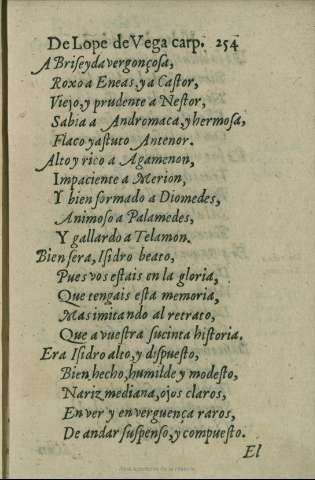 De Lope de Vega carp. 254
A Briseyda vergonçosa,
Roxo a Eneas, y a Castor,
Viejo, y prudente a Nestor,
Sabia a Andromaca, y hermosa,
Flaco y astuto Antenor.
Alto y rico a Agamenon,
Impaciente a Merion,
Y bien formado a Diomedes,
Animoso a Palamedes,
Y gallardo a Telamon.
Bien sera, Isidro beato,
Pues vos estais en la gloria,
Que tengais esta memoria,
Mas imitando al retrato,
Que a vuestra sucinta historia.
Era Isidro alto, y dispuesto,
Bien, hecho, humilde y modesto,
Nariz mediana, ojos claros,
En ver y en verguença raros,
De andar suspenso, y compuesto.
El